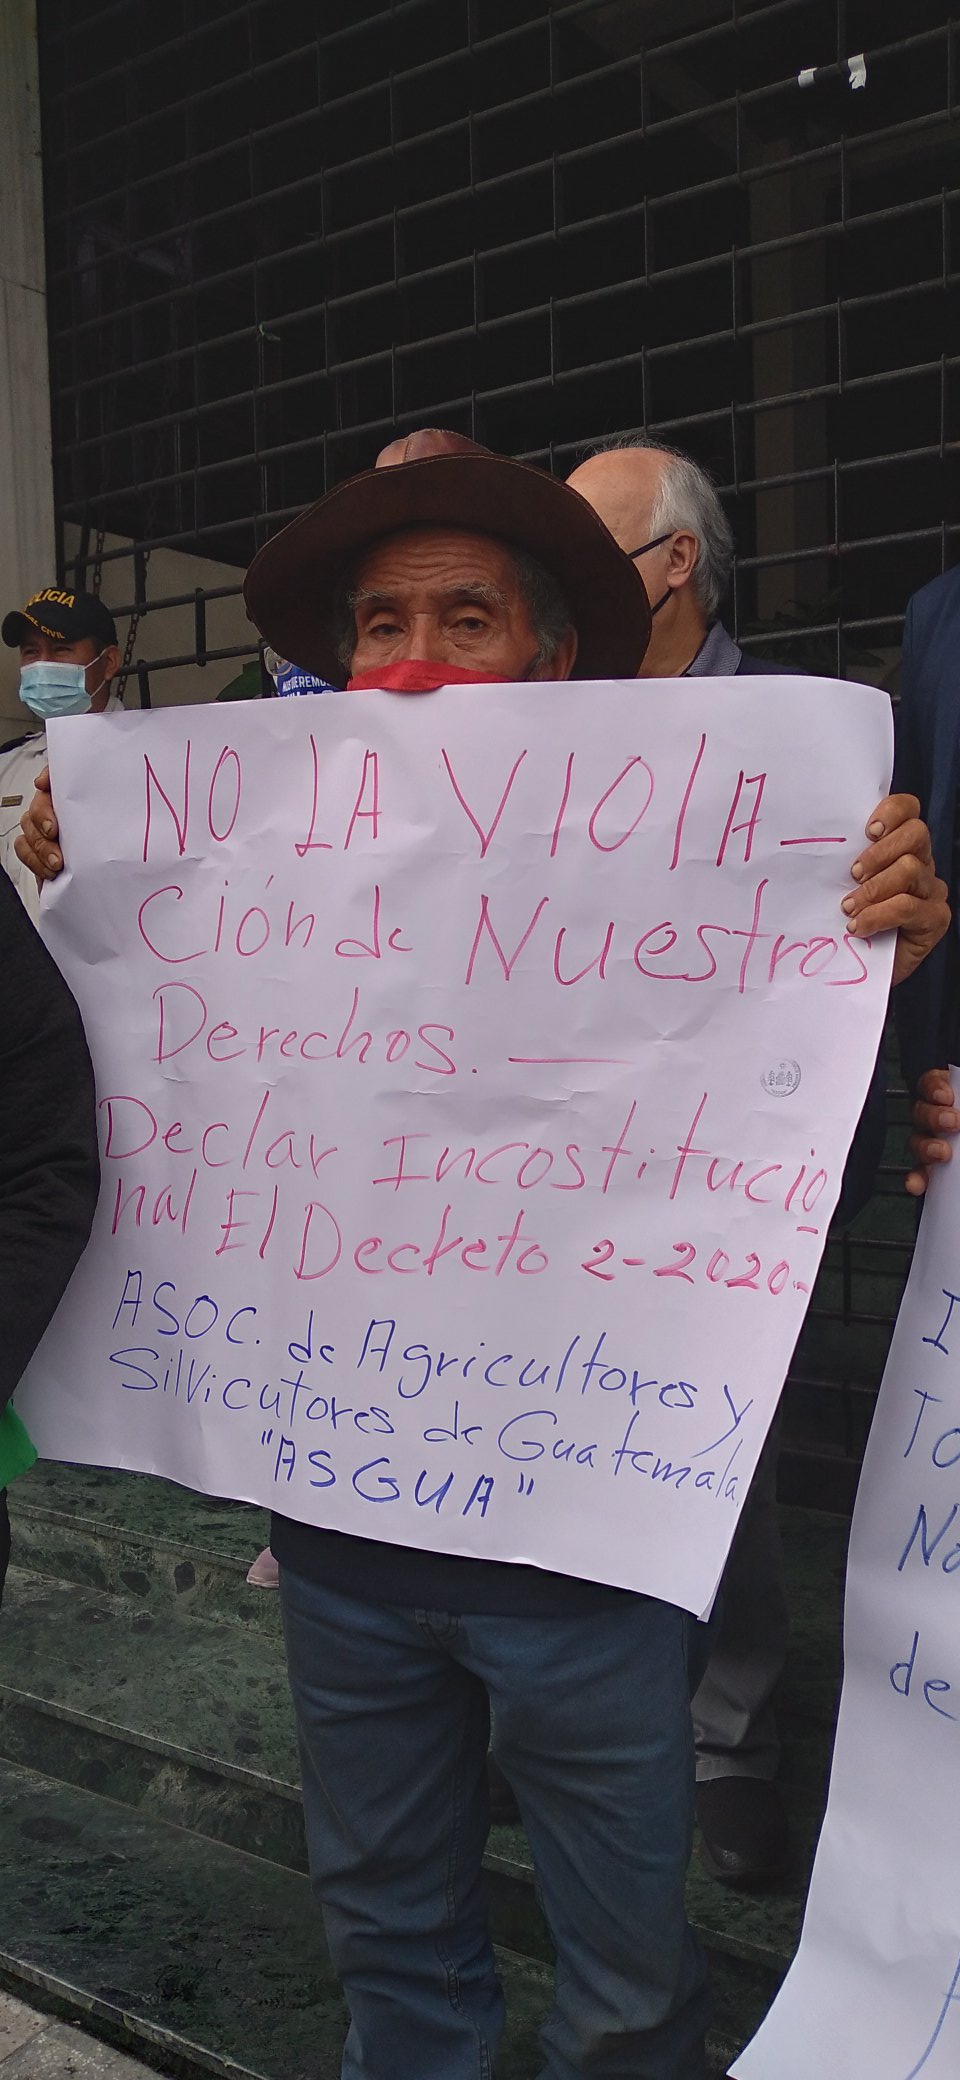 POLICIA
CIVIL
NO LA VIOLA-
Ción de Nuestros
Derechos. —
Declar Incostitucio
nal El Decreto 2-2020.-
ASOC. de Agricultores y
Silvicutores de Guatemala.
"ASGUA"
No
de